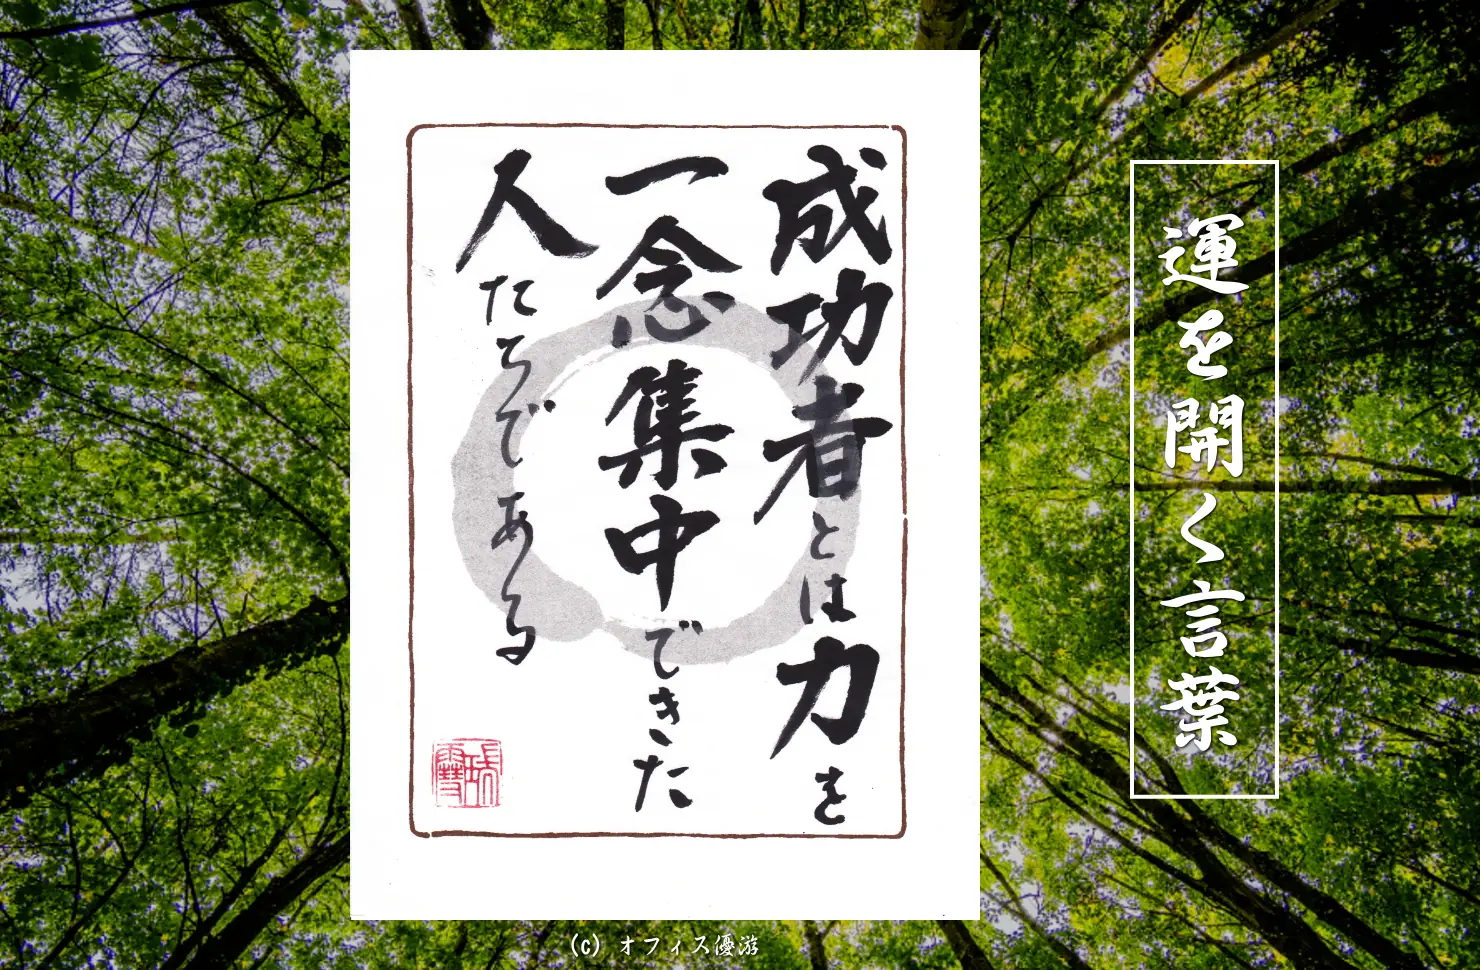 運を開く言葉
成功者とは力を
一念集中できた
人たちである
(c) オフィス優游